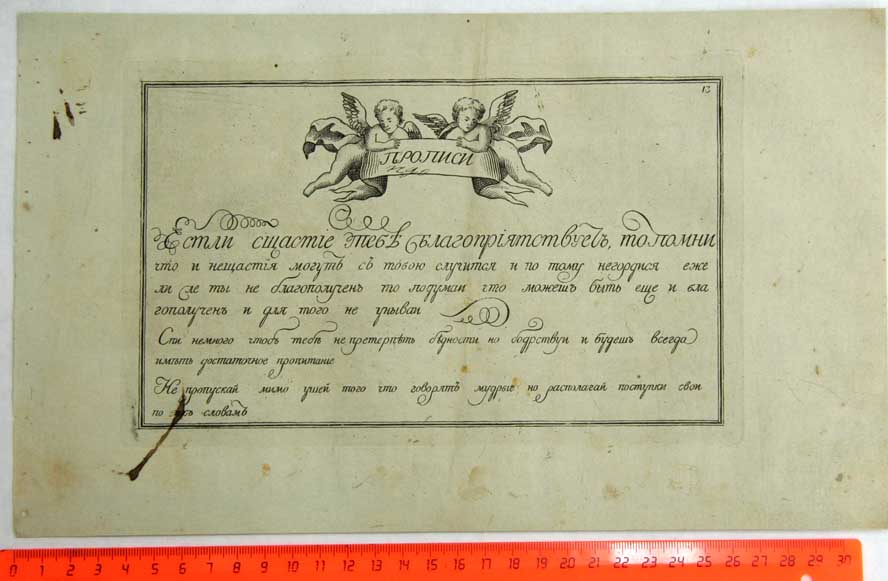 13
ПРОПИСИ
Естли сщастіе тебѣ благопріятствуетъ, то помни
что и нещастія могутъ съ тобою случится и по тому негордися еже
ли же ты не благополученъ то подумаи что можешъ быть еще и бла
гополученъ и для того не унываи
Спи немного чтобъ тебѣ не претерпѣть бѣдности но бодрствуи и будешь всегда
имѣть достаточное пропитаніе
Не пропускай мимо ушей того что говорятъ мудрые но располагай поступки свои
по ихъ словамъ
0 1 2 3 4 5 6 7 8 9 10 11 12 13 14 15 16 17 18 19 20 21 22 23 24 25 26 27 28 29 30